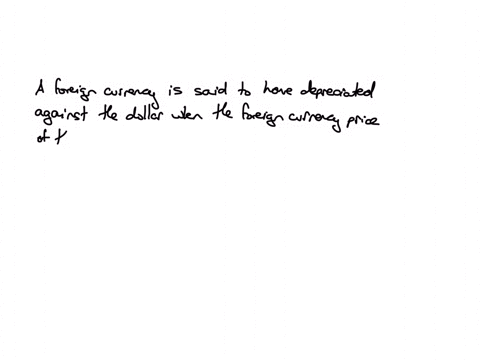 A foreign currency is said to have depreciated
against the dollar when the foreign currency price
of t